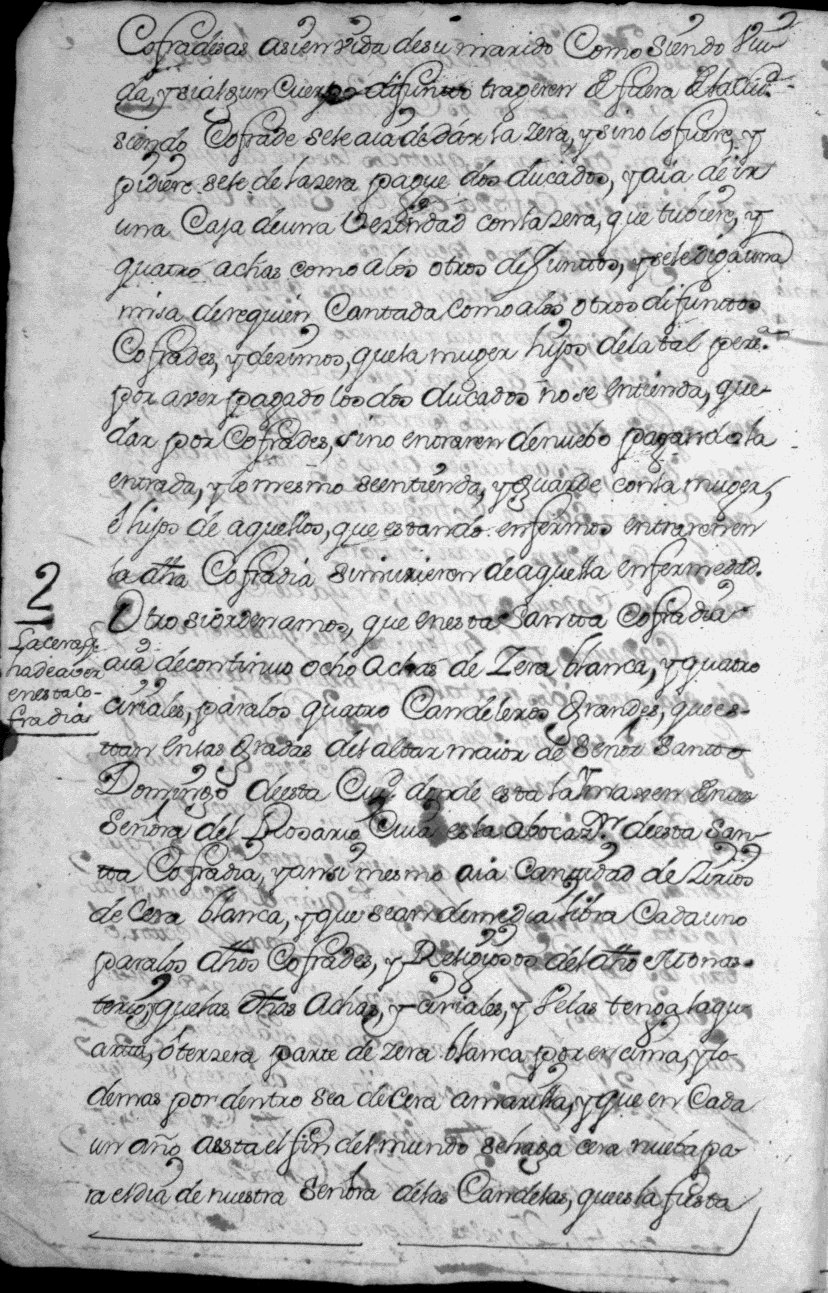 Cofradesas asi en vida de su marido Como siendo Viu-
da, y si algun Cuerpo difunto trageren de fuera de la Ciu.d
siendo Cofrade se le aia de dár la zera, y si no lo fuere, y
pidiere se le de la zera pague dos ducados, y aia de ir
una Caja de una Vezindad con la zera, que tubiere, y
quatro achas como a los otros defuntos, y se le diga una
misa de requien Cantada Como a los otros difunttos
Cofrades, y dezimos, que la muger hijos de la tal pers.na
por aver pagado los dos ducados no se entienda, que-
dar por Cofrades, sino entraren de nuebo pagando la
entrada, y lo mesmo se entienda, y guarde con la muger,
é hijos de aquellos, que estando enfermos entraren en
la dha Cofradia si murieren de aquella enfermedd.
2
La cera q.e
ha de aver
en esta Co-
fradia
Otro si ordenamos, que en esta Santta Cofradia
aia de continuo ocho Achas de Zera blanca, y quatro
ciriales, para los quatro Candeleros Grandes, que es-
ttan en las Gradas del altar maior de Señor Santto
Domingo de esta Ciu.d donde esta la Ymagen de nra
Señora del Rosario Cuia es la abocaz.n de esta San-
tta Cofradia, y ansi mesmo aia Cantidad de Zirios
de Cera blanca, y que sean de media libra Cada uno
para los dhos Cofrades, y Religiosos del dho Monas-
terio, y que las dhas Achas, y ciriales, y Velas tenga la qu-
arta, ó terzera parte de zera blanca por encima, y lo
demas por dentro sea de Cera amarilla, y que en Cada
un año assta el fin del mundo se haga cera nueba pa-
ra el dia de nuestra Señora de las Candelas, que es la fiesta